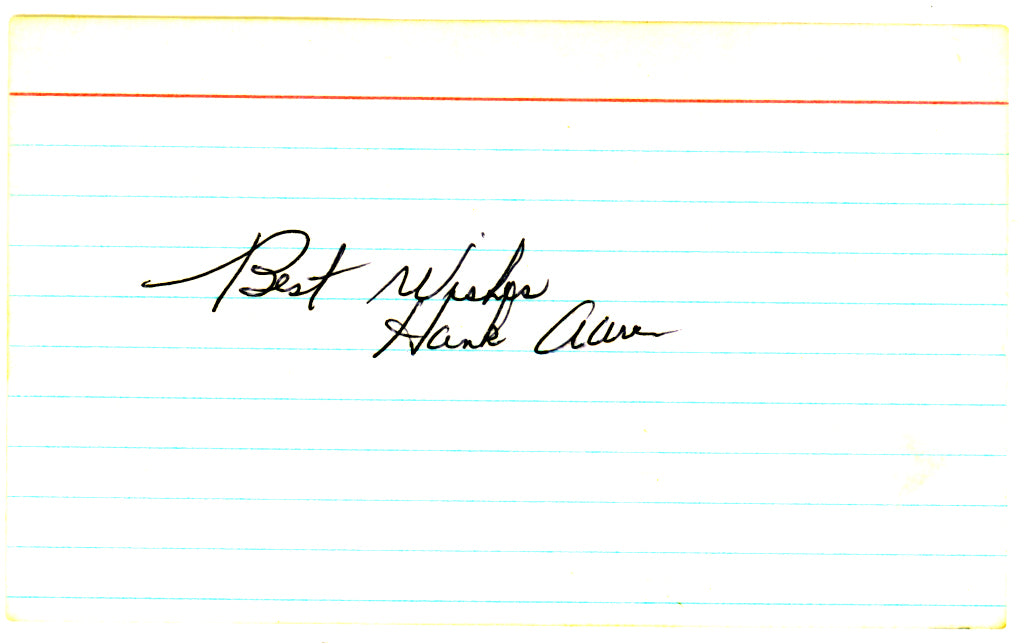 Best Wishes
Hank Aaron